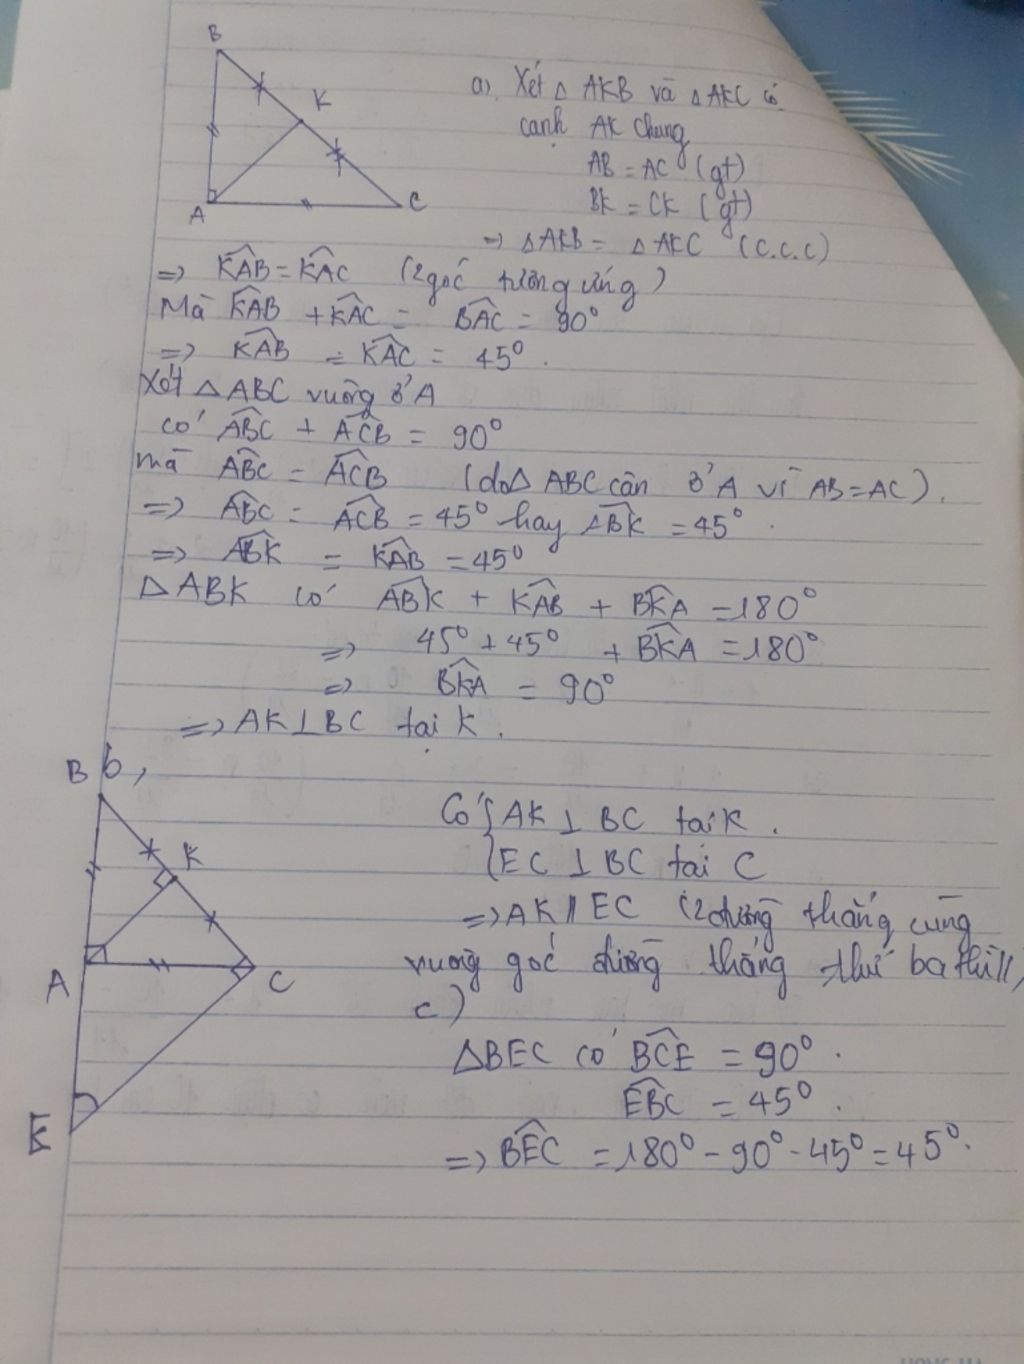 B
K
A
C
a) Xét △ AKB và △ AKC có
cạnh AK chung
AB = AC (gt)
BK = CK (gt)
=> △AKB = △AKC (c.c.c)
=> K̂AB = K̂AC (2 góc tương ứng)
Mà K̂AB + K̂AC = B̂AC = 90°
=> K̂AB = K̂AC = 45°.
Xét △ABC vuông ở A
có ÂBC + ÂCB = 90°
mà ÂBC = ÂCB (do△ ABC cân ở A vì AB=AC).
=> ÂBC = ÂCB = 45° hay ÂBK = 45°.
=> ÂBK = K̂AB = 45°
△ABK có ÂBK + K̂AB + B̂KA = 180°
=> 45° + 45° + B̂KA = 180°
=> B̂KA = 90°
=> AK⊥BC tại K.
b,
B
K
A
C
E
Có { AK ⊥ BC tại K.
EC ⊥ BC tại C
=> AK // EC (2 đường thẳng cùng
vuông góc đường thẳng thứ ba thì //)
c)
△BEC có B̂CE = 90°.
ÊBC = 45°.
=> B̂EC = 180° - 90° - 45° = 45°.